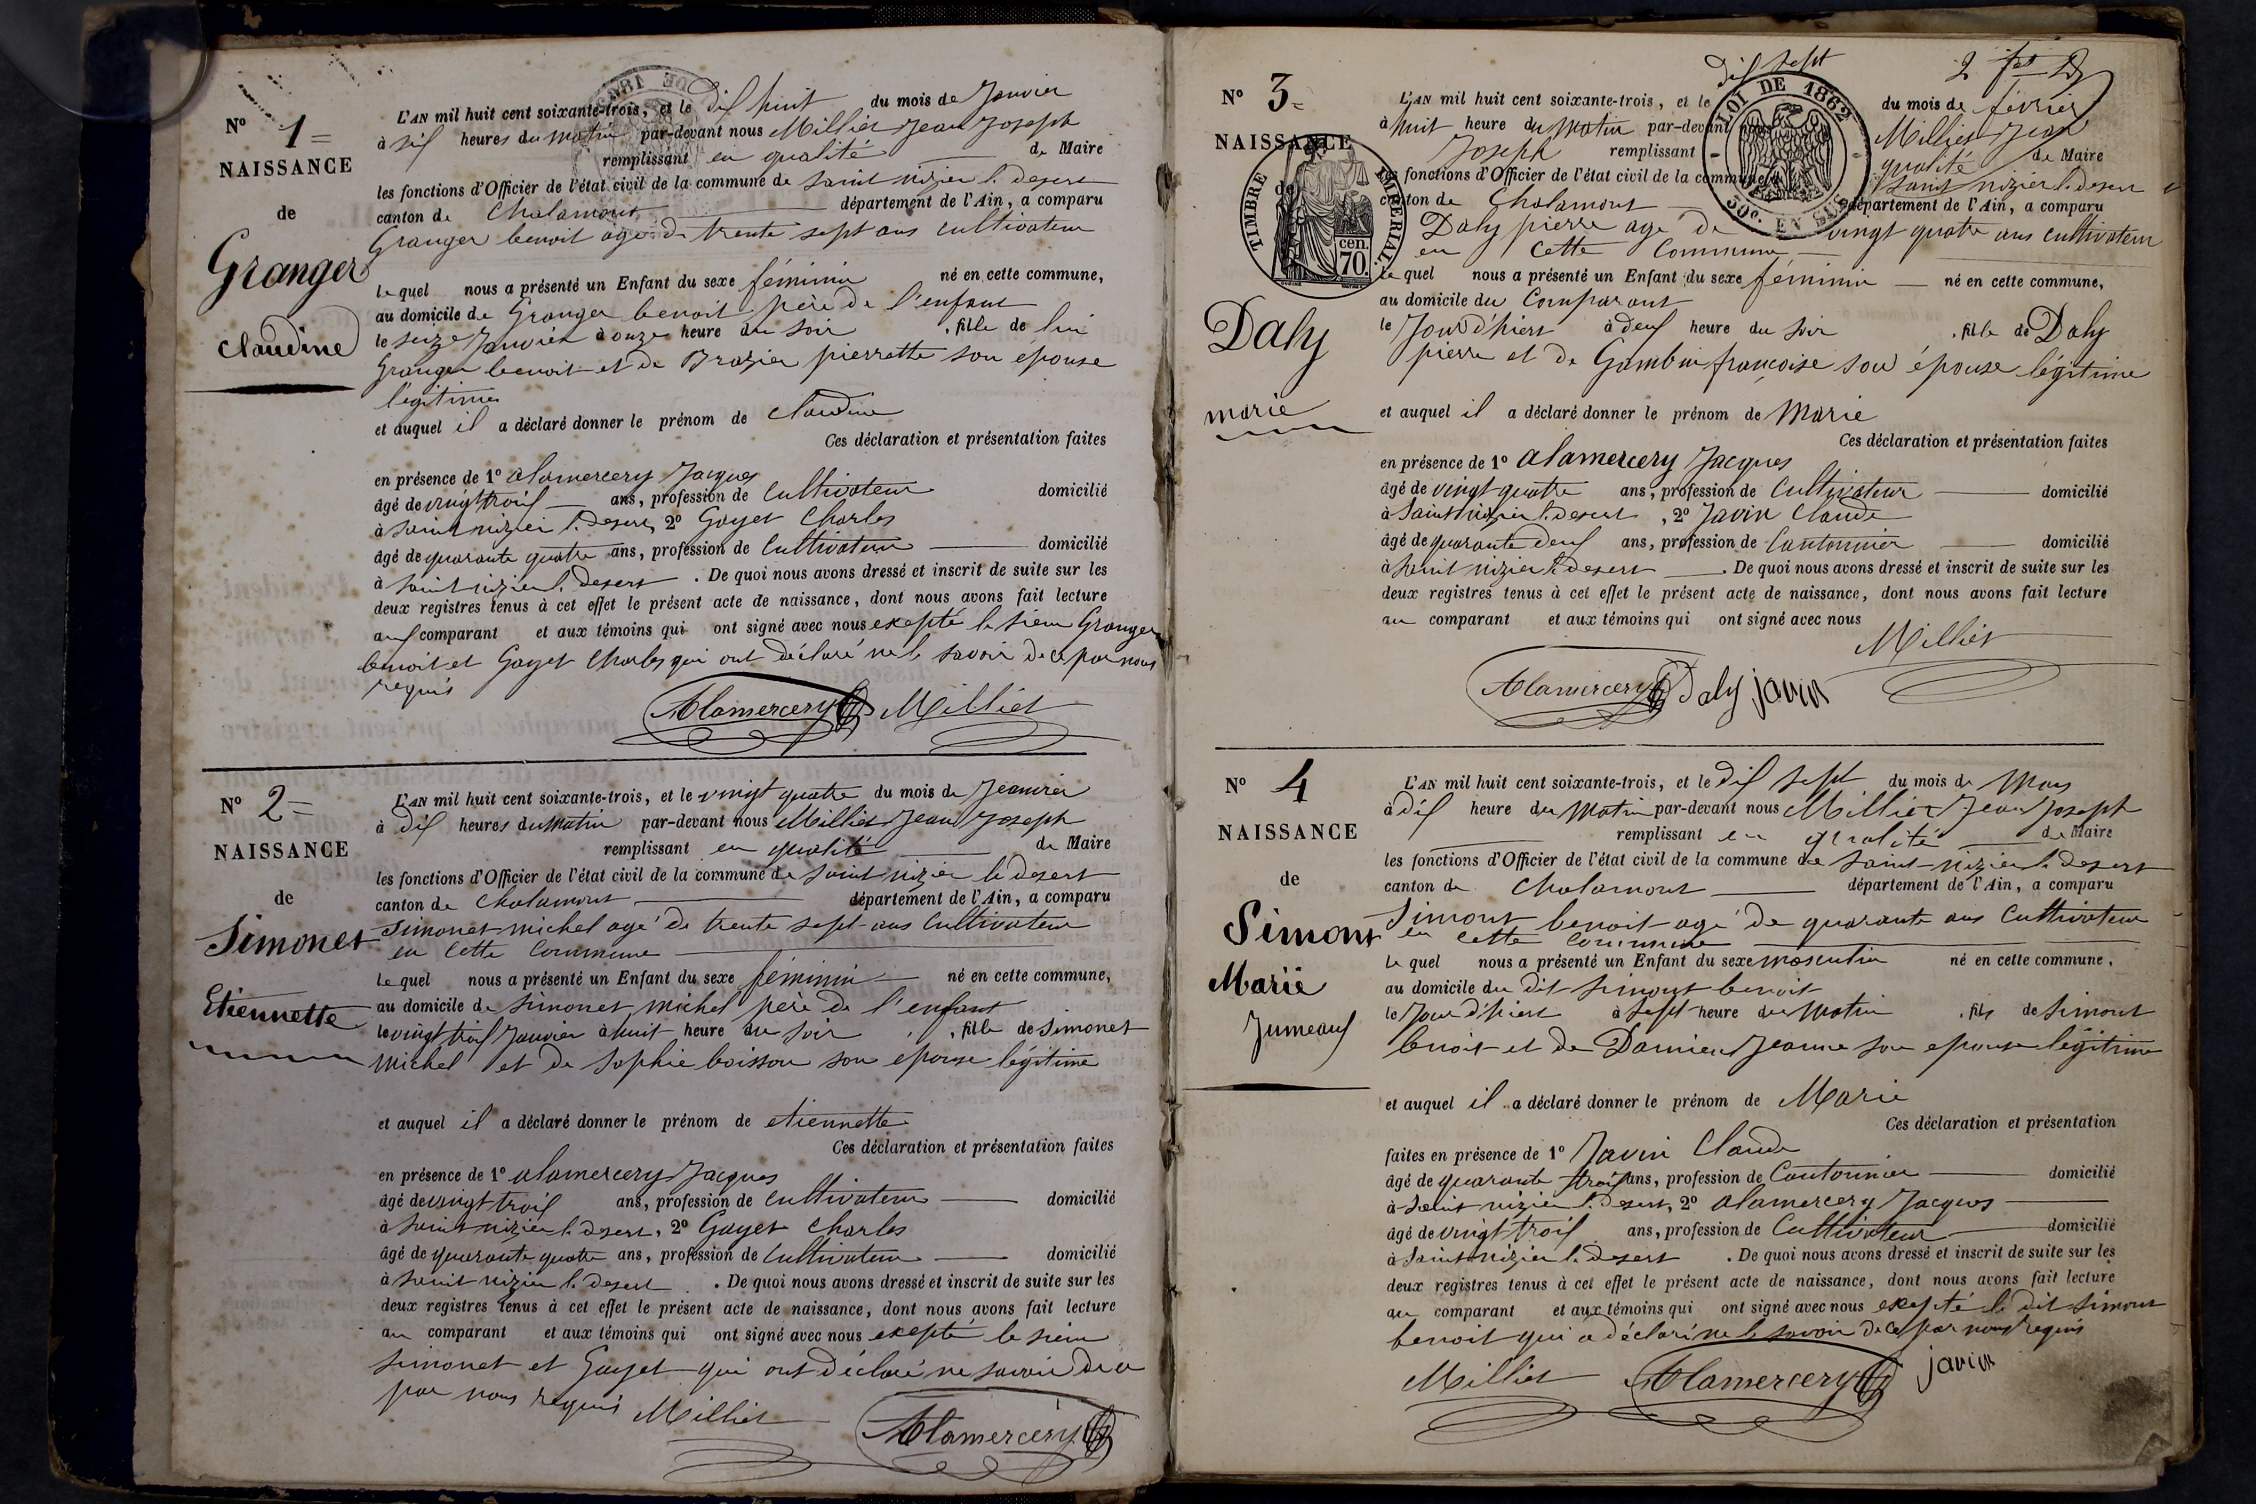 N° 1=
NAISSANCE
de
Granger
Claudine
L'AN mil huit cent soixante-trois, et le dix huit du mois de Janvier
à dix heures du matin par-devant nous Milliet Jean Joseph
remplissant en qualité de Maire
les fonctions d'Officier de l'état civil de la commune de Saint nizier le desert
canton de Chalamont département de l'Ain, a comparu
Granger benoit agé de trente sept ans cultivateur
Le quel nous a présenté un Enfant du sexe féminin né en cette commune,
au domicile de Granger benoit père de l'enfant
le seize Janvier à onze heure du soir, fille de lui
Granger benoit et de Brazier pierrette son épouse
légitime
et auquel il a déclaré donner le prénom de Claudine
Ces déclaration et présentation faites
en présence de 1° alamercery Jacques
âgé de vingt troix ans, profession de Cultivateur domicilié
à Saint nizier le desert, 2° Gayet Charles
âgé de quarante quatre ans, profession de Cultivateur domicilié
à Saint nizier le desert. De quoi nous avons dressé et inscrit de suite sur les
deux registres tenus à cet effet le présent acte de naissance, dont nous avons fait lecture
aux comparant et aux témoins qui ont signé avec nous excepté le sieur Granger
benoit et Gayet Charles qui ont déclaré ne le savoir de ce par nous
requis
Alamercery Milliet
N° 2=
NAISSANCE
de
Simonet
Etiennette
L'AN mil huit cent soixante-trois, et le vingt quatre du mois de Jeanvier
à dix heures du matin par-devant nous Milliet Jean Joseph
remplissant en qualité de Maire
les fonctions d'Officier de l'état civil de la commune de Saint nizier le desert
canton de Chalamont département de l'Ain, a comparu
Simonet michel agé de trente sept ans Cultivateur
en cette Commune
Le quel nous a présenté un Enfant du sexe féminin né en cette commune,
au domicile de Simonet michel père de l'enfant
le vingt troix Janvier à huit heure du soir, fille de Simonet
Michel et de Sophie boisson son épouse légitime
et auquel il a déclaré donner le prénom de etiennette
Ces déclaration et présentation faites
en présence de 1° alamercery Jacques
âgé de vingt troix ans, profession de Cultivateur domicilié
à Saint nizier le desert, 2° Gayet Charles
âgé de quarante quatre ans, profession de Cultivateur domicilié
à Saint nizier le desert. De quoi nous avons dressé et inscrit de suite sur les
deux registres tenus à cet effet le présent acte de naissance, dont nous avons fait lecture
au comparant et aux témoins qui ont signé avec nous excepté le sieur
Simonet et Gayet qui ont déclaré ne savoir de ce
par nous requis Milliet Alamercery
2 fet D
N° 3=
NAISSANCE
de
Daly
marie
TIMBRE IMPERIAL.
cen. 70.
LOI DE 1862
50c. EN SUS
L'AN mil huit cent soixante-trois, et le dix sept du mois de février
à huit heure du Matin par-devant nous Milliet Jean
Joseph remplissant qualité de Maire
les fonctions d'Officier de l'état civil de la commune de Saint nizier le desert
canton de Chalamont département de l'Ain, a comparu
Daly pierre age de vingt quatre ans cultivateur
en Cette Commune
Le quel nous a présenté un Enfant du sexe féminin né en cette commune,
au domicile du Comparant
le Jour d'hiert à deux heure du soir, fille de Daly
pierre et de Gambin françoise son épouse légitime
et auquel il a déclaré donner le prénom de Marie
Ces déclaration et présentation faites
en présence de 1° alamercery Jacques
âgé de vingt quatre ans, profession de Cultivateur domicilié
à Saint nizier le desert, 2° Javin Claude
âgé de quarante deux ans, profession de Cantonnier domicilié
à Saint nizier le desert. De quoi nous avons dressé et inscrit de suite sur les
deux registres tenus à cet effet le présent acte de naissance, dont nous avons fait lecture
au comparant et aux témoins qui ont signé avec nous
Milliet
Alamercery Daly javin
N° 4
NAISSANCE
de
Simont
Marie
Jumeaux
L'AN mil huit cent soixante-trois, et le dix sept du mois de Mars
à dix heure du Matin par-devant nous Milliet Jean Joseph
remplissant en qualité de Maire
les fonctions d'Officier de l'état civil de la commune de Saint nizier le desert
canton de Chalamont département de l'Ain, a comparu
Simont benoit agé de quarante ans Cultivateur
en cette commune
Le quel nous a présenté un Enfant du sexe masculin né en cette commune,
au domicile du dit Simont benoit
le Jour d'hiert à sept heure du Matin, fils de Simont
benoit et de Damien Jeanne son epouse légitime
et auquel il a déclaré donner le prénom de Marie
Ces déclaration et présentation
faites en présence de 1° Javin Claude
âgé de quarante troix ans, profession de Cantonnier domicilié
à Saint nizier le desert, 2° alamercery Jacques
âgé de vingt troix ans, profession de Cultivateur domicilié
à Saint nizier le desert. De quoi nous avons dressé et inscrit de suite sur les
deux registres tenus à cet effet le présent acte de naissance, dont nous avons fait lecture
au comparant et aux témoins qui ont signé avec nous excepté le dit Simont
benoit qui a déclaré ne le savoir de ce par nous requis
Milliet Alamercery javin